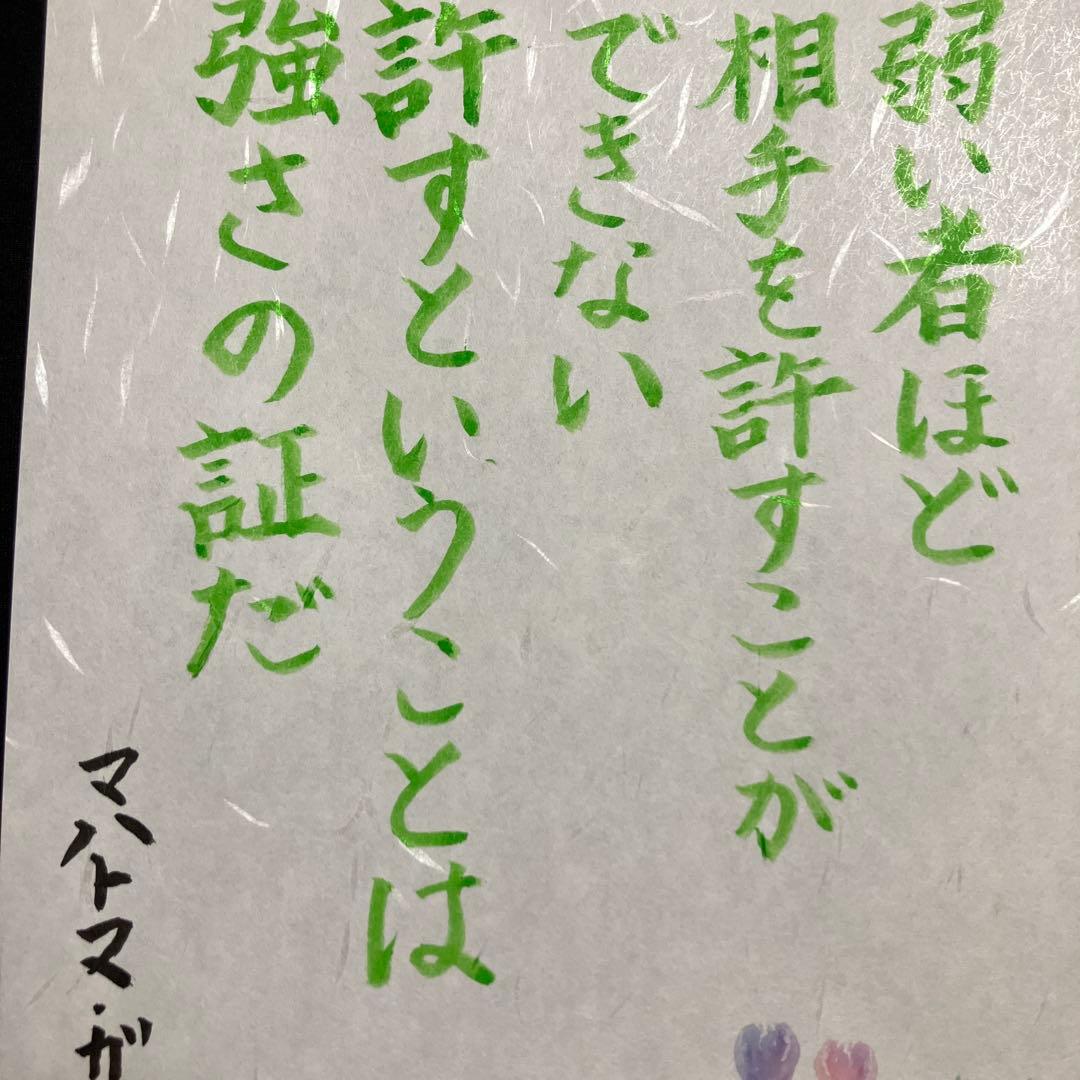 弱い者ほど
相手を許すことが
できない
許すということは
強さの証だ
マハトマ・ガ